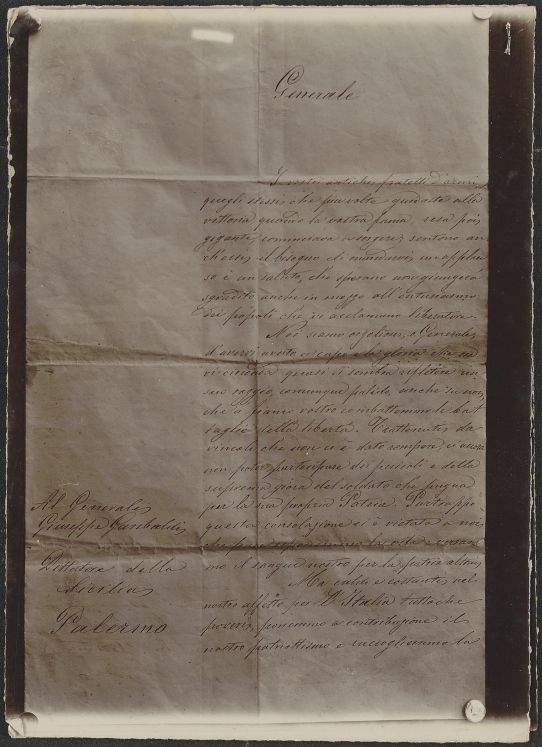 Generale
I vostri antichi fratelli d'armi
quegli stessi che più volte guidaste alla
vittoria quando la vostra fama, resa poi
gigante, cominciava a sorgere; sentono an
ch'essi il bisogno di mandarvi un applau
so e un saluto, che sperano non giungerà
sgradito anche in mezzo all'entusiasmo
dei popoli che vi acclamano liberatore.
Noi siamo orgogliosi, o Generale,
d'avervi avuto a capo e la gloria che ora
vi circonda quasi ci sembra riflettere un
suo raggio, comunque pallido, anche su noi,
che a fianco vostro combattemmo le bat
taglie della libertà. Trattenuti da
vincoli che non ci è dato rompere, ci
non poter partecipare di pericoli e della
suprema gioia del soldato che pugna
per la sua propria Patria. Purtroppo
questa consolazione ci è vietata a noi
che pure
mo il sangue nostro per la patria altrui
Ma caldi e costanti nel
nostro affetto per l'Italia tuttochè
poveri, ponemmo a contribuzione il
nostro patriottismo e raccogliemmo la
Al Generale
Giuseppe Garibaldi
Dittatore della
Sicilia
Palermo